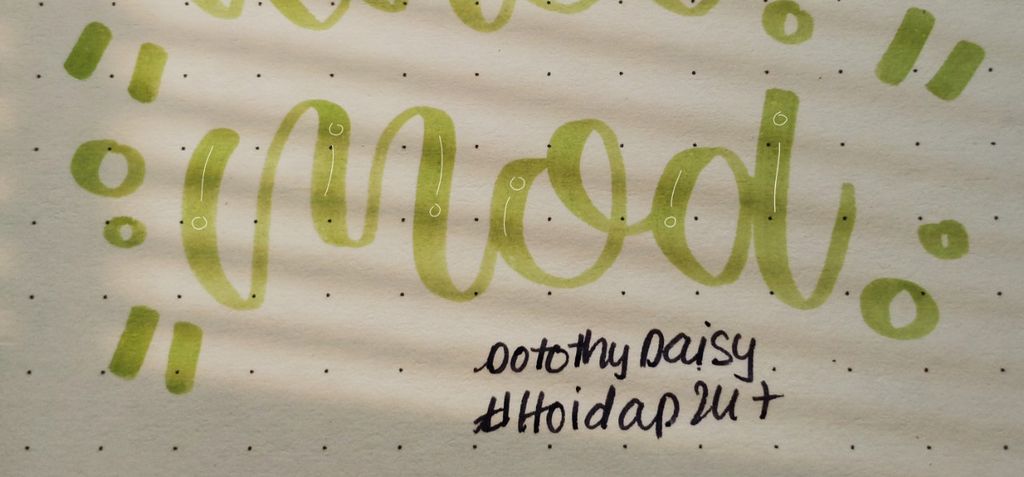 mod
DotothyDaisy.
#Hoidap24+